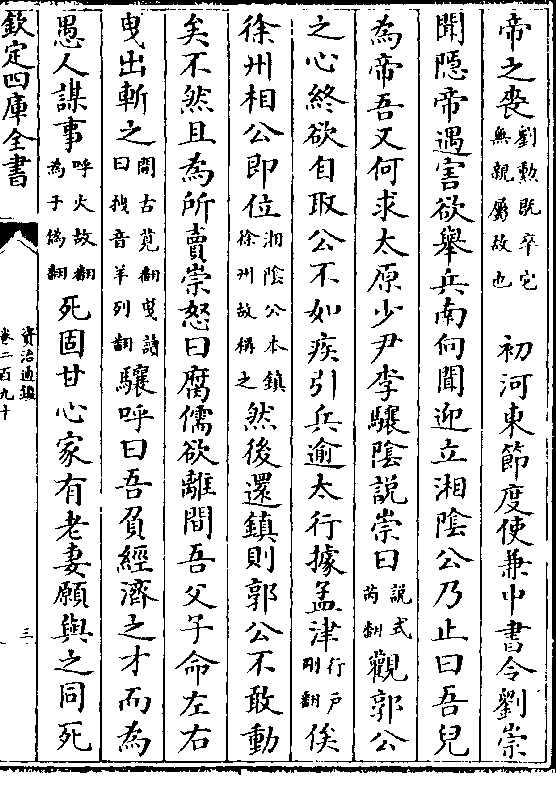 帝之喪劉勲既卒它無親屬故也 初河東節度使兼中書令劉崇
聞隱帝遇害欲舉兵南向聞迎立湘隂公乃止曰吾兒
為帝吾又何求太原少尹李驤隂説崇曰説式芮翻觀郭公
之心終欲自取公不如疾引兵逾太行據孟津行户剛翻俟
徐州相公即位湘隂公本鎮徐州故稱之然後還鎮則郭公不敢動
矣不然且為所賣崇怒曰腐儒欲離間吾父子命左右
曳出斬之間古莧翻曳讀曰拽音羊列翻驤呼曰吾負經濟之才而為
愚人謀事呼火故翻為于偽翻死固甘心家有老妻願與之同死
欽定四庫全書
資治通鑑
卷二百九十
三